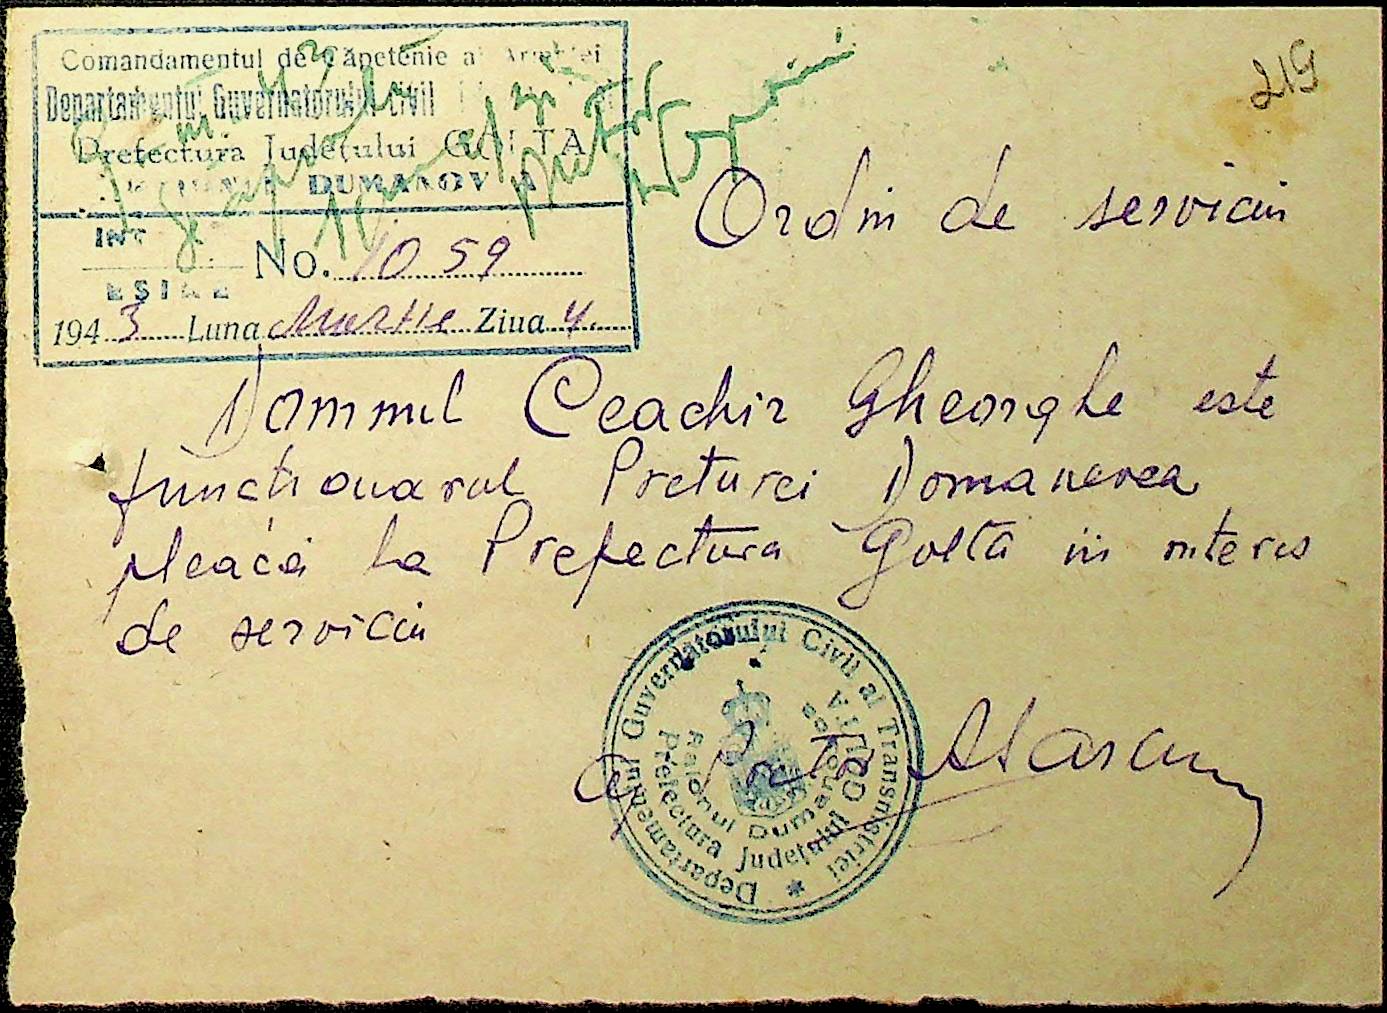 219
Comandamentul de Căpetenie al Armatei
Departamentul Guvernatorului Civil
Prefectura Județului GOLTA
DUMANOVCA
INT
No. 1059
EȘIRE
1943 Luna Martie Ziua 4
Ordin de serviciu
Domnul Ceachir Gheorghe este
functionarul Preturei Domanevca
pleacă la Prefectura Golta in interes
de serviciu
Departamentul Guvernatorului Civil al Transnistriei
Prefectura Județului GOLTA
Raionul Dumanovca
Pretor